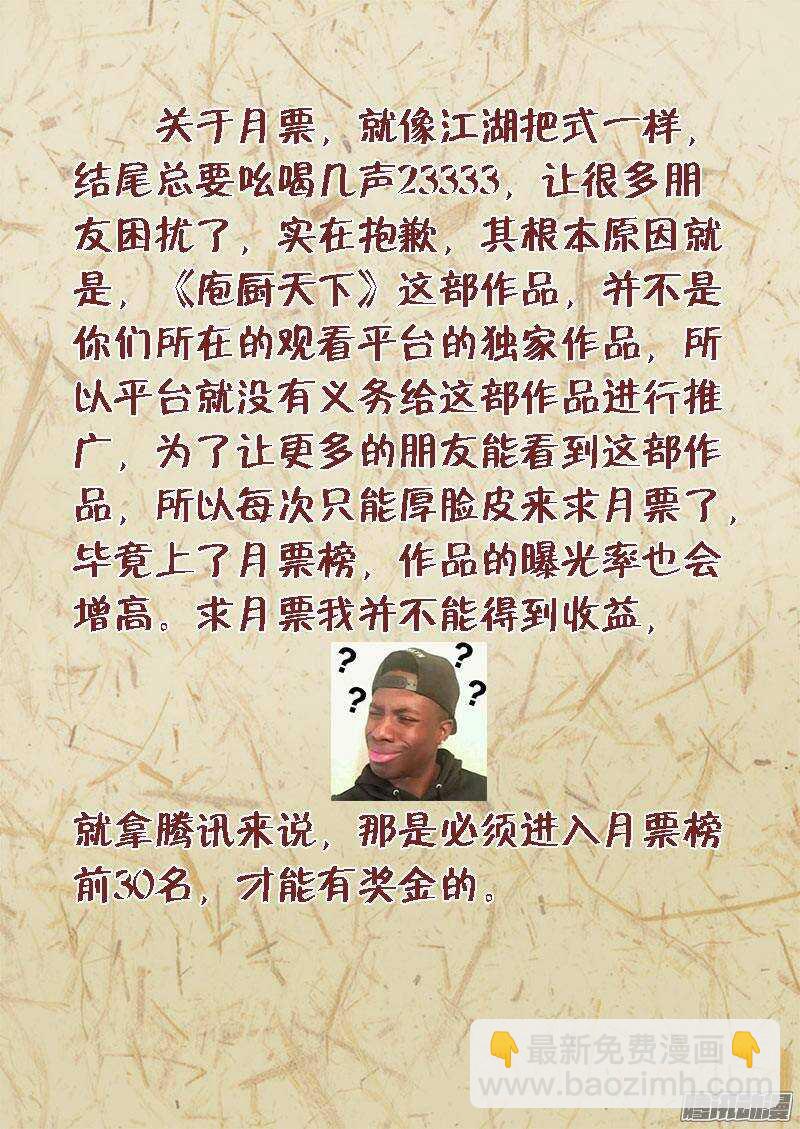 关于月票，就像江湖把式一样，
结尾总要吆喝几声23333，让很多朋
友困扰了，实在抱歉，其根本原因就
是，《庖厨天下》这部作品，并不是
你们所在的观看平台的独家作品，所
以平台就没有义务给这部作品进行推
广，为了让更多的朋友能看到这部作
品，所以每次只能厚脸皮来求月票了，
毕竟上了月票榜，作品的曝光率也会
增高。求月票我并不能得到收益，
? ?
? ?
就拿腾讯来说，那是必须进入月票榜
前30名，才能有奖金的。
👇最新免费漫画👇
www.baozimh.com